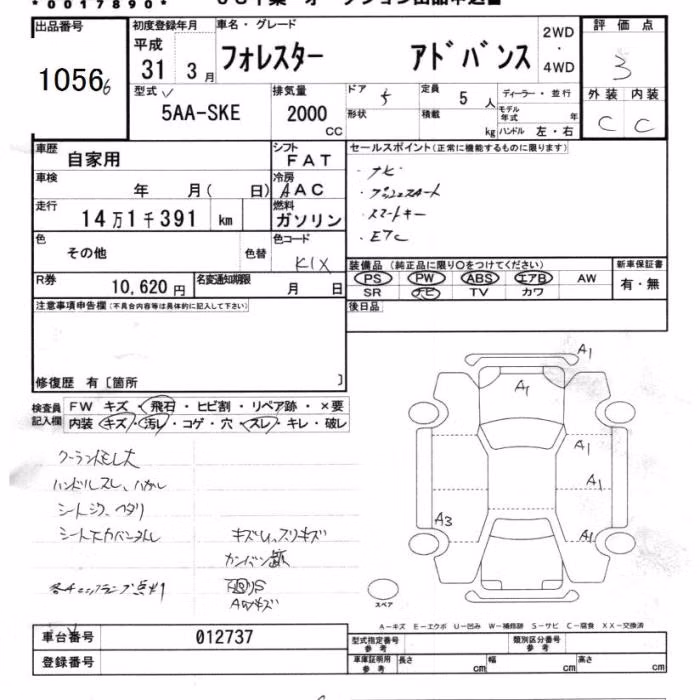 *0017890*
出品番号
10566
初度登録年月
平成
31 3月
車名・グレード
フォレスター アドバンス
2WD
・
4WD
評価点
3
型式
5AA-SKE
排気量
2000
CC
ドア
5
定員
5人
ディーラー・並行
モデル年式 年
形状
積載
kg
ハンドル 左・右
外装 内装
C C
車歴
自家用
シフト
FAT
車検
年 月( 日)
冷房
AAC
走行
14万1千391 km
燃料
ガソリン
色
その他
色替
色コード
K1X
R券
10,620円
名変通知期限
月 日
セールスポイント(正常に機能するものに限ります)
・ナビ
・プッシュスタート
・スマートキー
・ETC
装備品(純正品に限り○をつけてください)
PS PW ABS エアB AW
SR ナビ TV カワ
新車保証書
有・無
注意事項申告欄(不具合内容等は具体的に記入して下さい)
後日品
修復歴 有〔箇所 〕
検査員
記入欄
FW キズ・飛石・ヒビ割・リペア跡・×要
内装 キズ・汚レ・コゲ・穴・スレ・キレ・破レ
ハンドルスレ、ハガレ
A1
A1
A1
A1
A3
A1
スペア
A－キズ E－エクボ U－凹み W－補修跡 S－サビ C－腐食 XX－交換済
車台番号
012737
登録番号
型式指定番号
参考
類別区分番号
参考
車庫証明用
参考
長さ cm
幅 cm
高さ cm